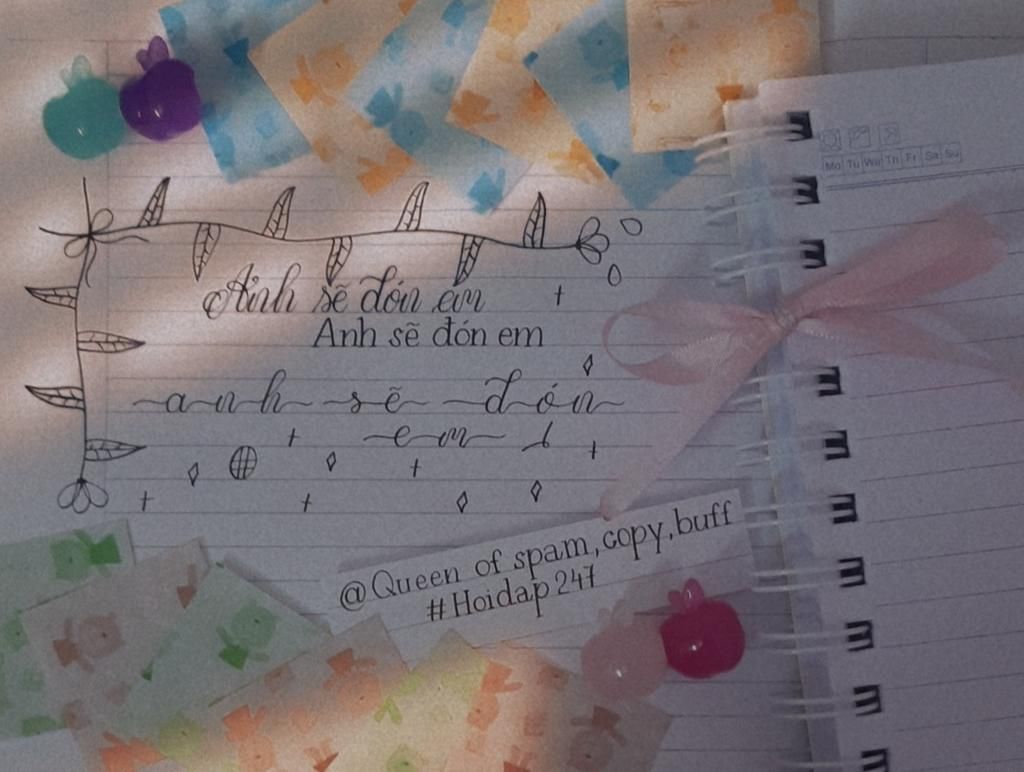 Mo Tu We Th Fr Sa Su
Anh sẽ đón em
Anh sẽ đón em
anh sẽ đón
em
@Queen of spam, copy, buff
#Hoidap247